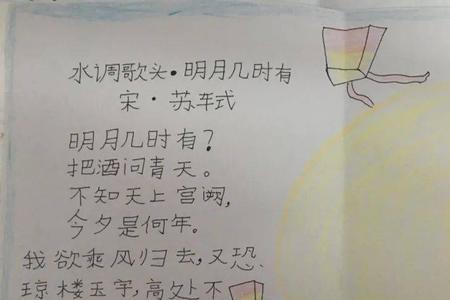 水调歌头·明月几时有
宋·苏轼
明月几时有?
把酒问青天。
不知天上宫阙,
今夕是何年。
我欲乘风归去,又恐
琼楼玉宇,高处不